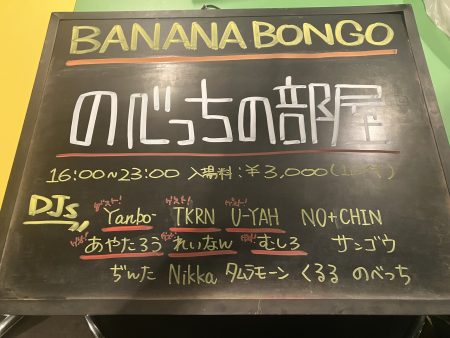 BANANA BONGO
のべっちの部屋
16:00~23:00 入場料:¥3,000
DJs ゲスト! Yanbo ゲスト! TKRN ゲスト! U-YAH NO+CHIN
あやたろう れいなん むしろ サンゴウ
ぢんた Nikka タムラモーン くるる のべっち